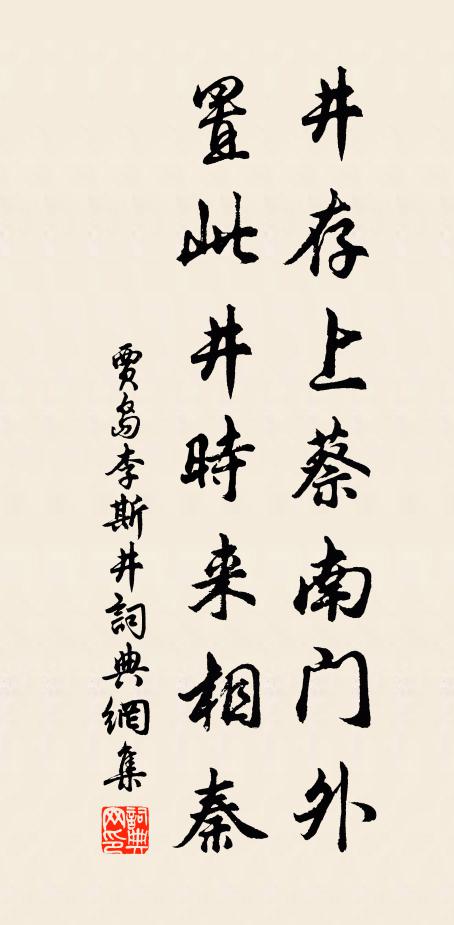 井存上蔡南门外
置此井時来相秦
賈島李斯井詞典網集
詞典
网印